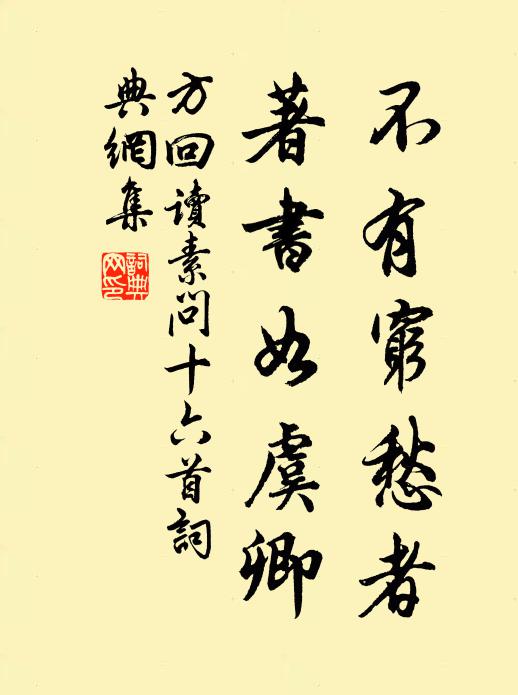 不有窮愁者
著書如虞卿
方回讀素問十六首詞
典網集
詞典
网印